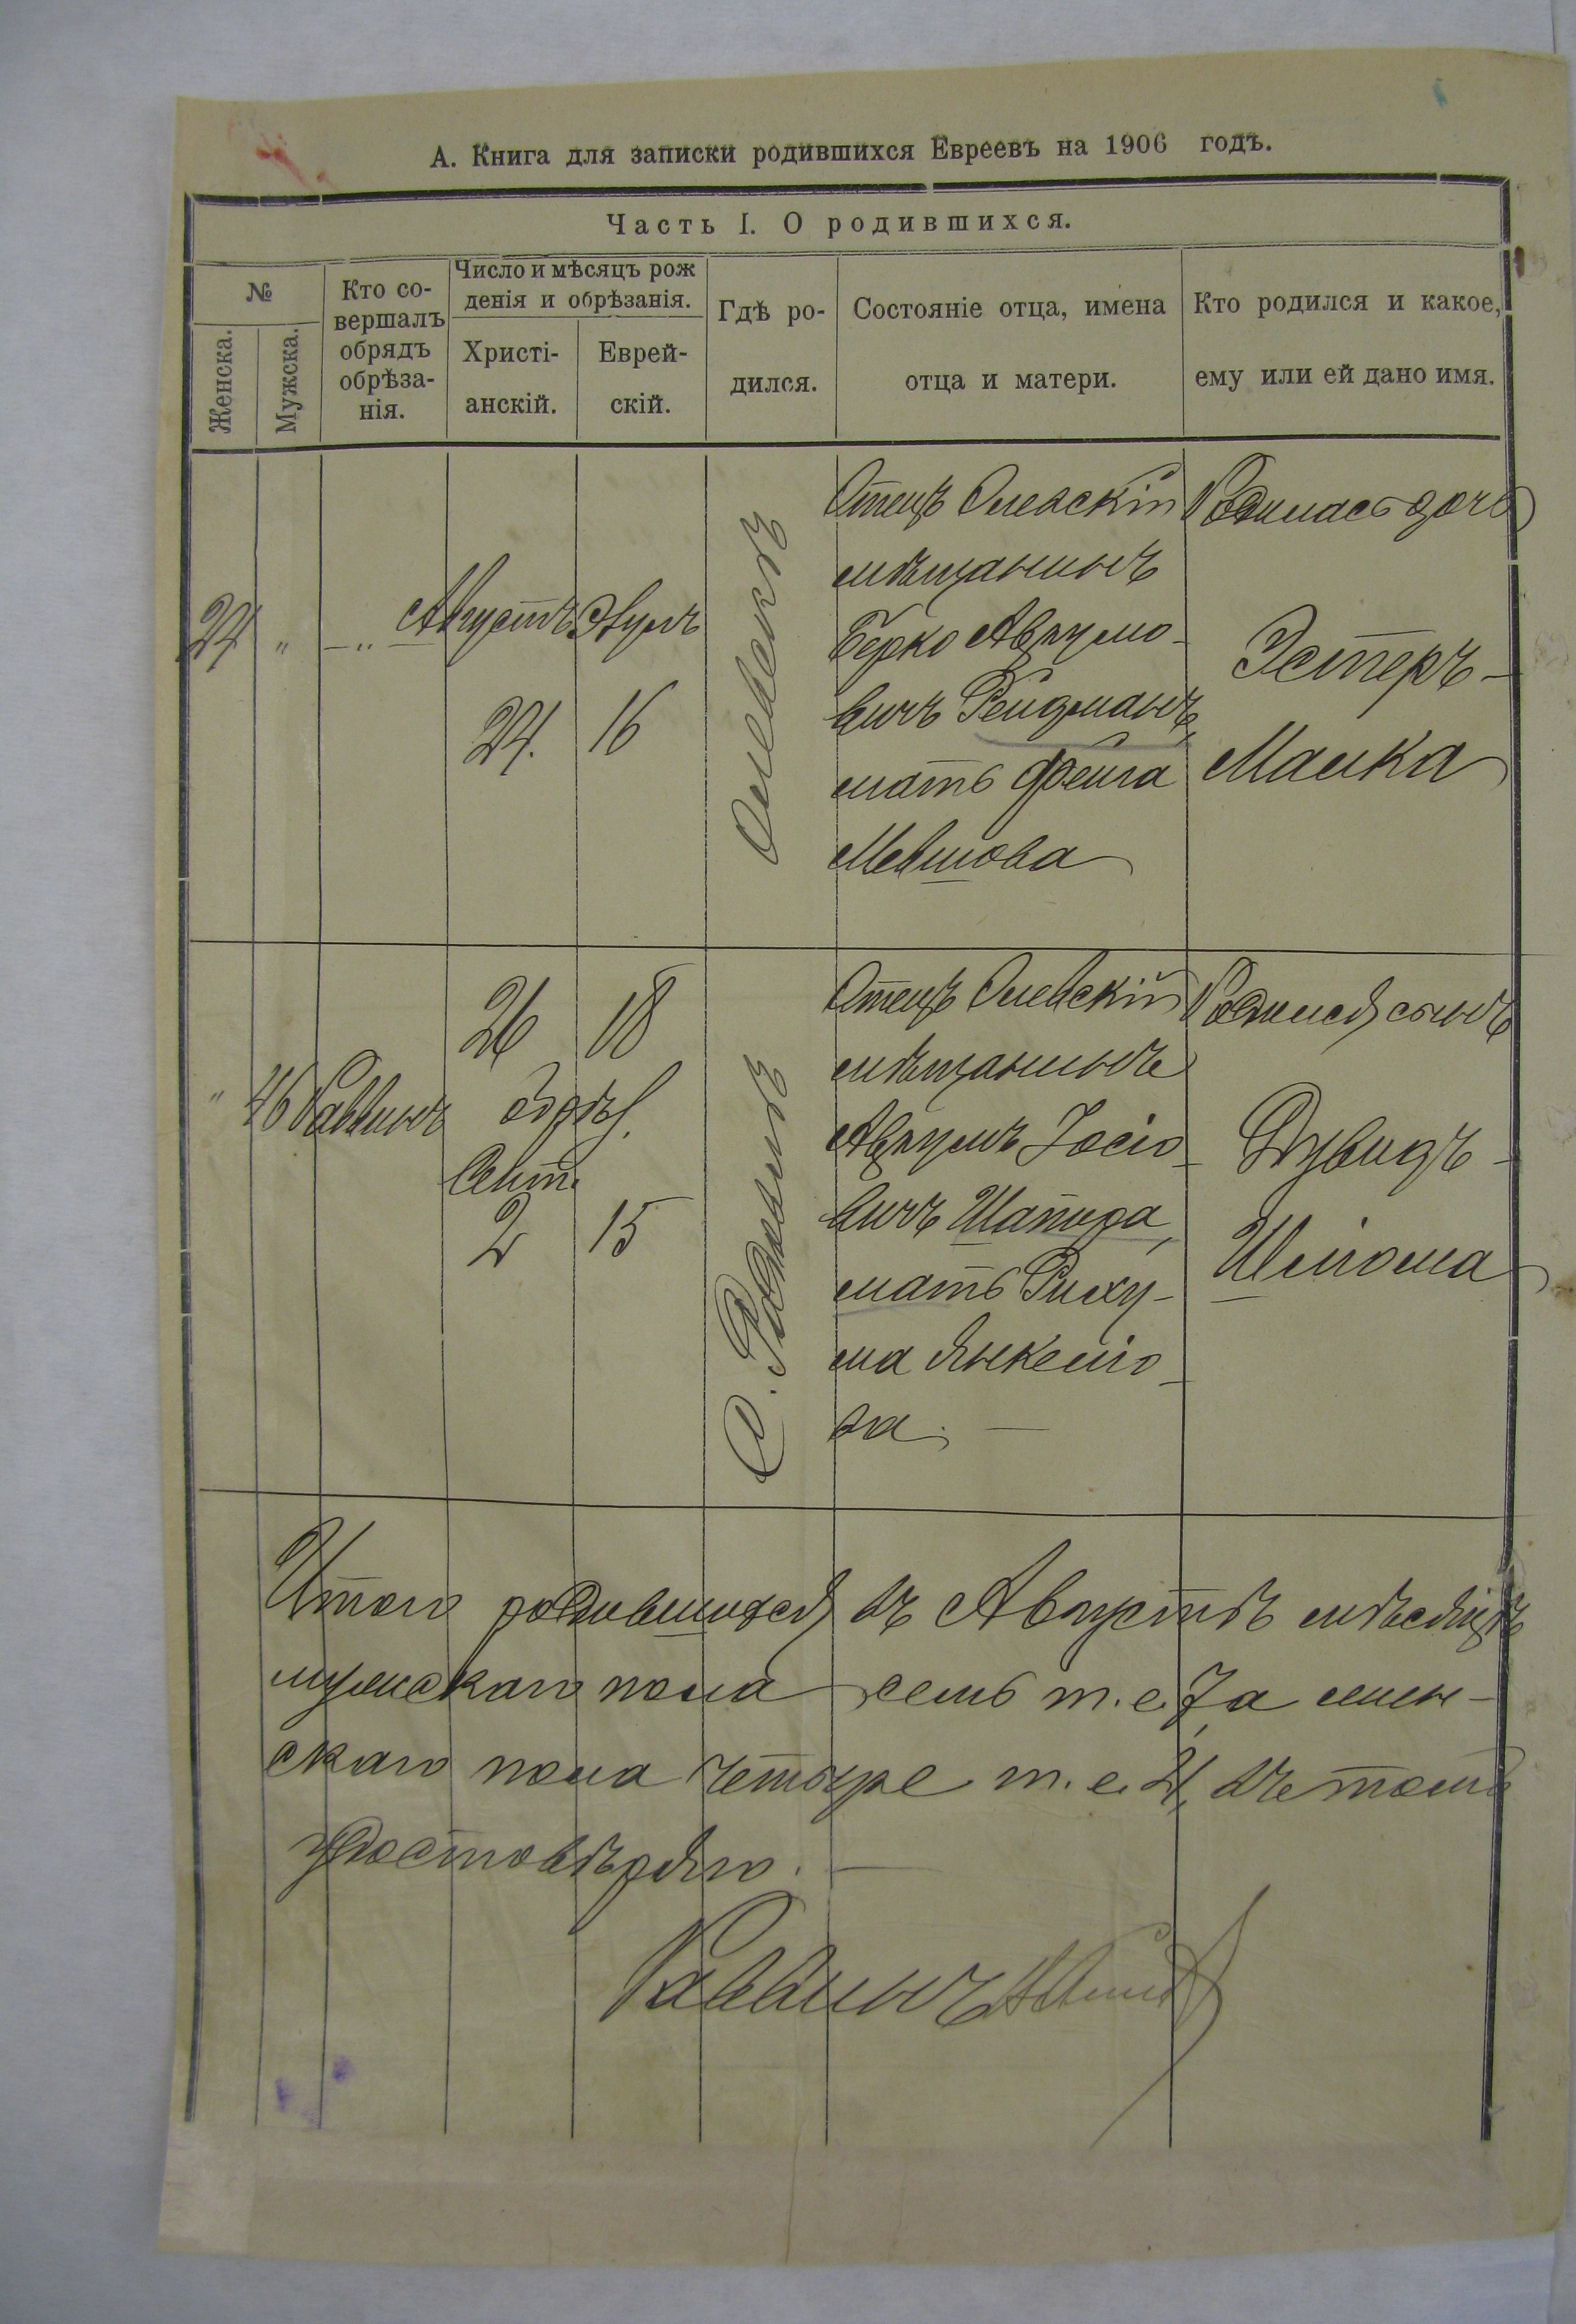 А. Книга для записки родившихся Евреевъ на 1906 годъ.
Часть I. О родившихся.
№
Женска.
Мужска.
Кто со-
вершалъ
обрядъ
обрѣза-
нія.
Число и мѣсяцъ рож
денія и обрѣзанія.
Христі-
анскій.
Еврей-
скій.
Гдѣ ро-
дился.
Состояніе отца, имена
отца и матери.
Кто родился и какое,
ему или ей дано имя.
24
"
— " —
Августъ
24.
Элулъ
16
Олевскъ
Отецъ Олевскій
мѣщанинъ
Берко Аврумо-
вичъ Рейдманъ,
мать Фейга
Мевшова
Родилась дочь
Эстеръ-
Малка
"
46
Раввинъ
26
обрѣз.
Сент.
2
18
15
Отецъ Олевскій
мѣщанинъ
Аврумъ Іосіо-
вичъ Шапира,
мать Риху-
ма Янкеліо-
ва. —
Родился сынъ
Дувидъ-
Шліома
Итого родившихся въ Августѣ мѣсяцѣ
мужскаго пола семь т. е. 7, а жен-
скаго пола четыре т. е. 4, въ томъ
удостовѣряю. —
Раввинъ